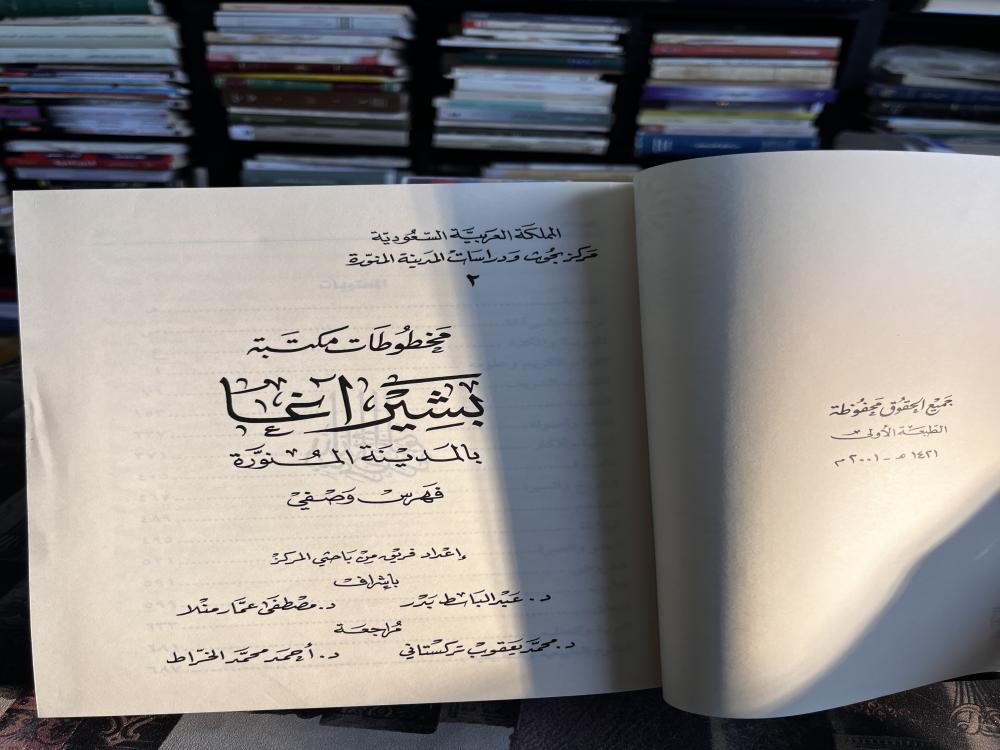 المملكة العربيّة السّعوديّة
مركز بحوث ودراسات المدينة المنوّرة
٢
مخطوطات مكتبة
بشير آغا
بالمدينة المنورة
فهرس وصفي
إعداد فريق من باحثي المركز
بإشراف
د. عبد الباسط بدر    د. مصطفى عمّار منلا
مُراجعة
د. محمّد يعقوب تركستاني    د. أحمد محمّد الخرّاط
جميع الحقوق محفوظة
الطبعة الأولى
١٤٢١ هـ - ٢٠٠١ م